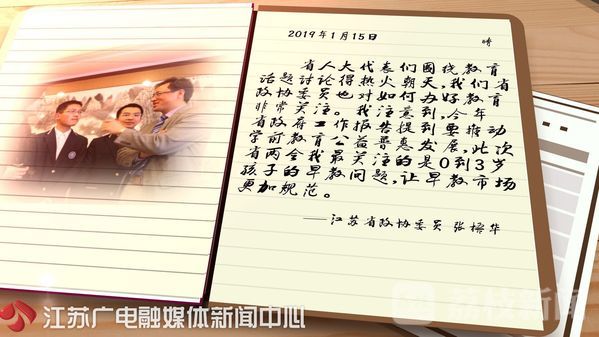 2019年1月15日 晴
省人大代表们围绕教育
话题讨论得热火朝天,我们省
政协委员也对如何办好教育
非常关注。我注意到,今年
省政府工作报告提到要推动
学前教育公益普惠发展,此次
省两会我最关注的是0到3岁
孩子的早教问题,让早教市场
更加规范。
——江苏省政协委员 张格华
江苏广电融媒体新闻中心
荔枝新闻